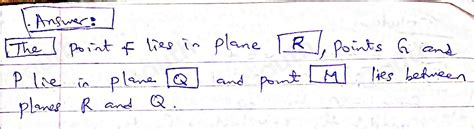 Answer:
The point f lies in plane R, points G and
P lie in plane Q and point M lies between
planes R and Q.